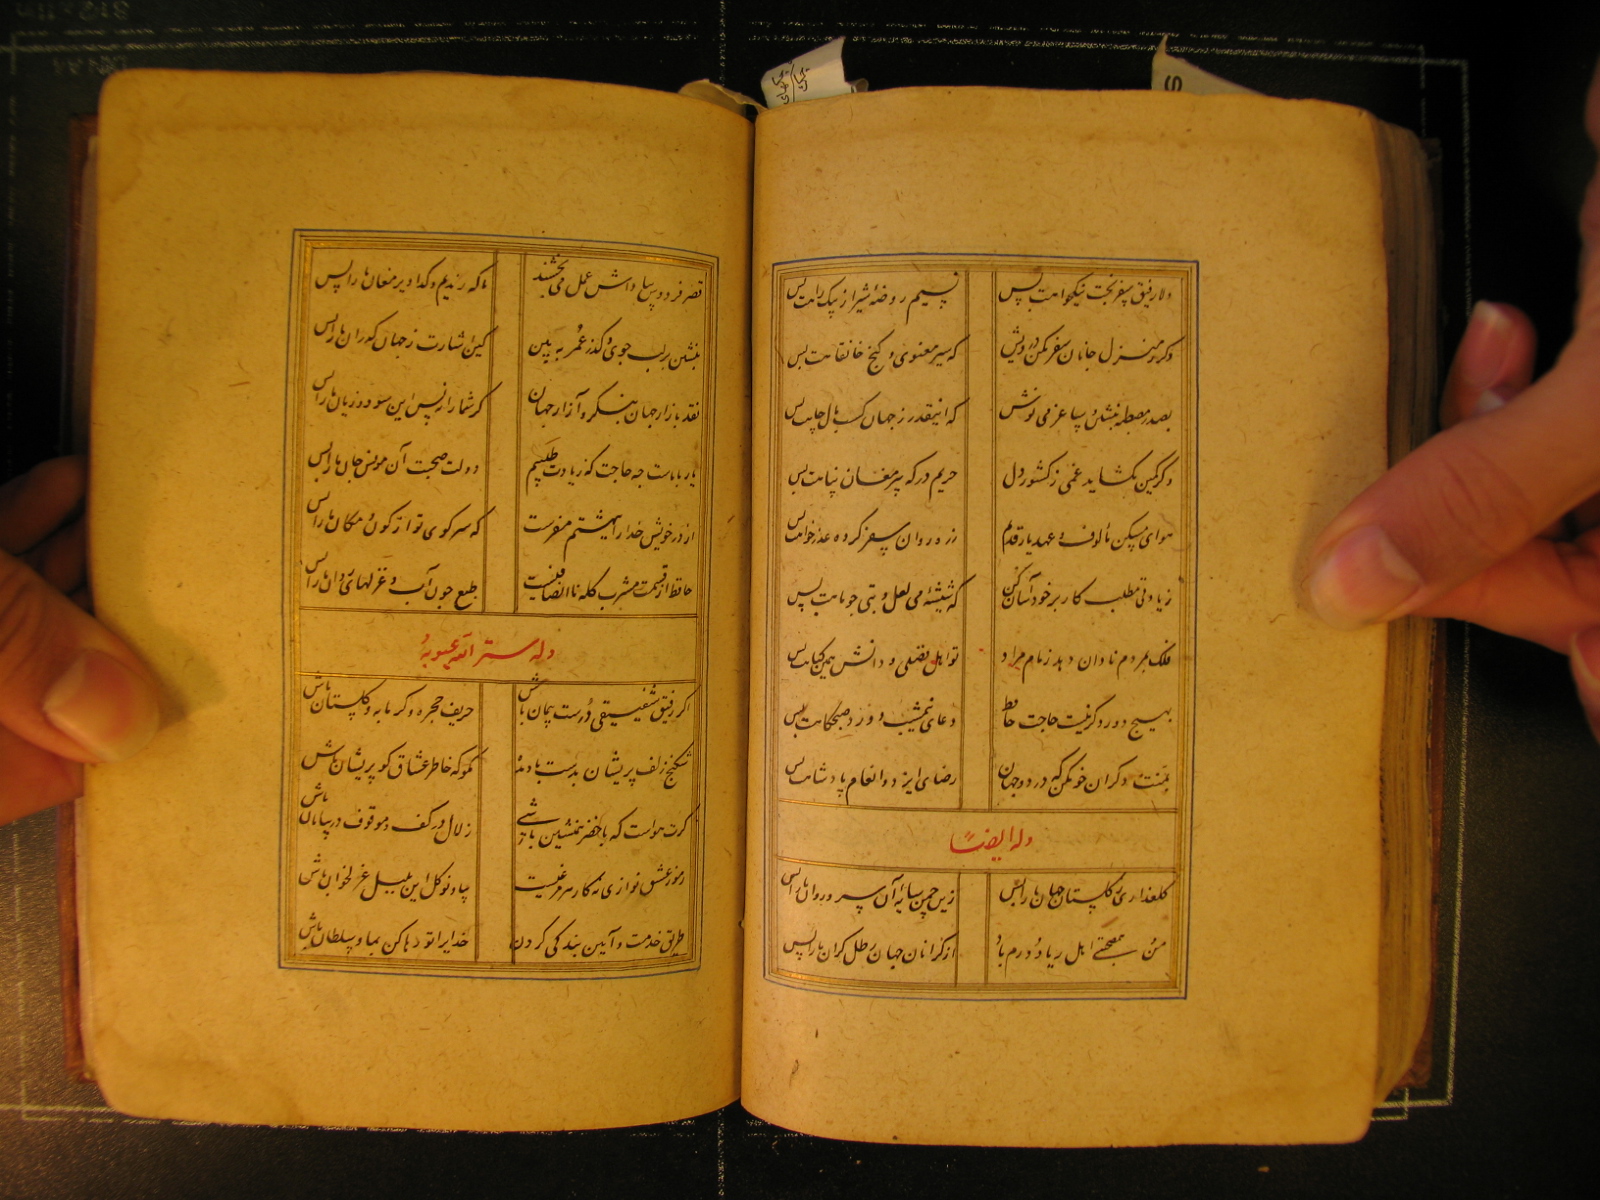 دلا رفیق سفر بخت نیکخواهت بس
نسیم روضهٔ شیراز پیک راهت بس
دکر ز منزل جانان سفر مکن درویش
که سیر معنوی و کنج خانقاهت بس
بصدر مصطبه بنشین و ساغر می نوش
که اینقدر ز جهان کسب مال و جاهت بس
وکر کمین بکشاید غمی ز کشور دل
حریم درکه پیر مغان پناهت بس
هوای مسکن مألوف و عهد یار قدیم
ز ره روان سفر کرده عذر خواهت بس
زیادتی مطلب کار بر خود آسان کن
که شیشهٔ می لعل و بتی چو ماهت بس
فلک بمردم نادان دهد زمام مراد
تو اهل فضلی و دانش همین کناهت بس
بهیچ ورد دکر نیست حاجت حافظ
دعای نیمشب و ورد صبحکاهت بس
بمنت دکران خو مکن که در دو جهان
رضای ایزد و انعام پادشاهت بس
وله ایضا
کلعذاری ز کلستان جهان ما را بس
زین چمن سایهٔ آن سرو روان ما را بس
من و همصحبتی اهل ریا دورم باد
از کرانان جهان رطل کران ما را بس
قصر فردوس بپاداش عمل می بخشند
ما که رندیم و کدا دیر مغان ما را بس
بنشین بر لب جوی و کذر عمر ببین
کین اشارت ز جهان کذران ما را بس
نقد بازار جهان بنکر و آزار جهان
کر شما را نه بس این سود و زیان ما را بس
یار با ماست چه حاجت که زیادت طلبیم
دولت صحبت آن مونس جان ما را بس
از در خویش خدا را به بهشتم مفرست
که سر کوی تو از کون و مکان ما را بس
حافظ از قسمت مشرب کله نا انصافیست
طبع چون آب و غزلهای روان ما را بس
وله ستر الله عیوبه
اکر رفیق شفیقی درست پیمان باش
حریف حجره و کرمابه و کلستان باش
شکنج زلف پریشان بدست باد مده
مکو که خاطر عشاق کو پریشان باش
کرت هواست که با خضر همنشین باشی
رموز عشق نوازی نه کار هر مرغیست
بیا و نو کل این بلبل غزلخوان باش
طریق خدمت و آیین بندکی کردن
خدای را تو رها کن بما و سلطان باش